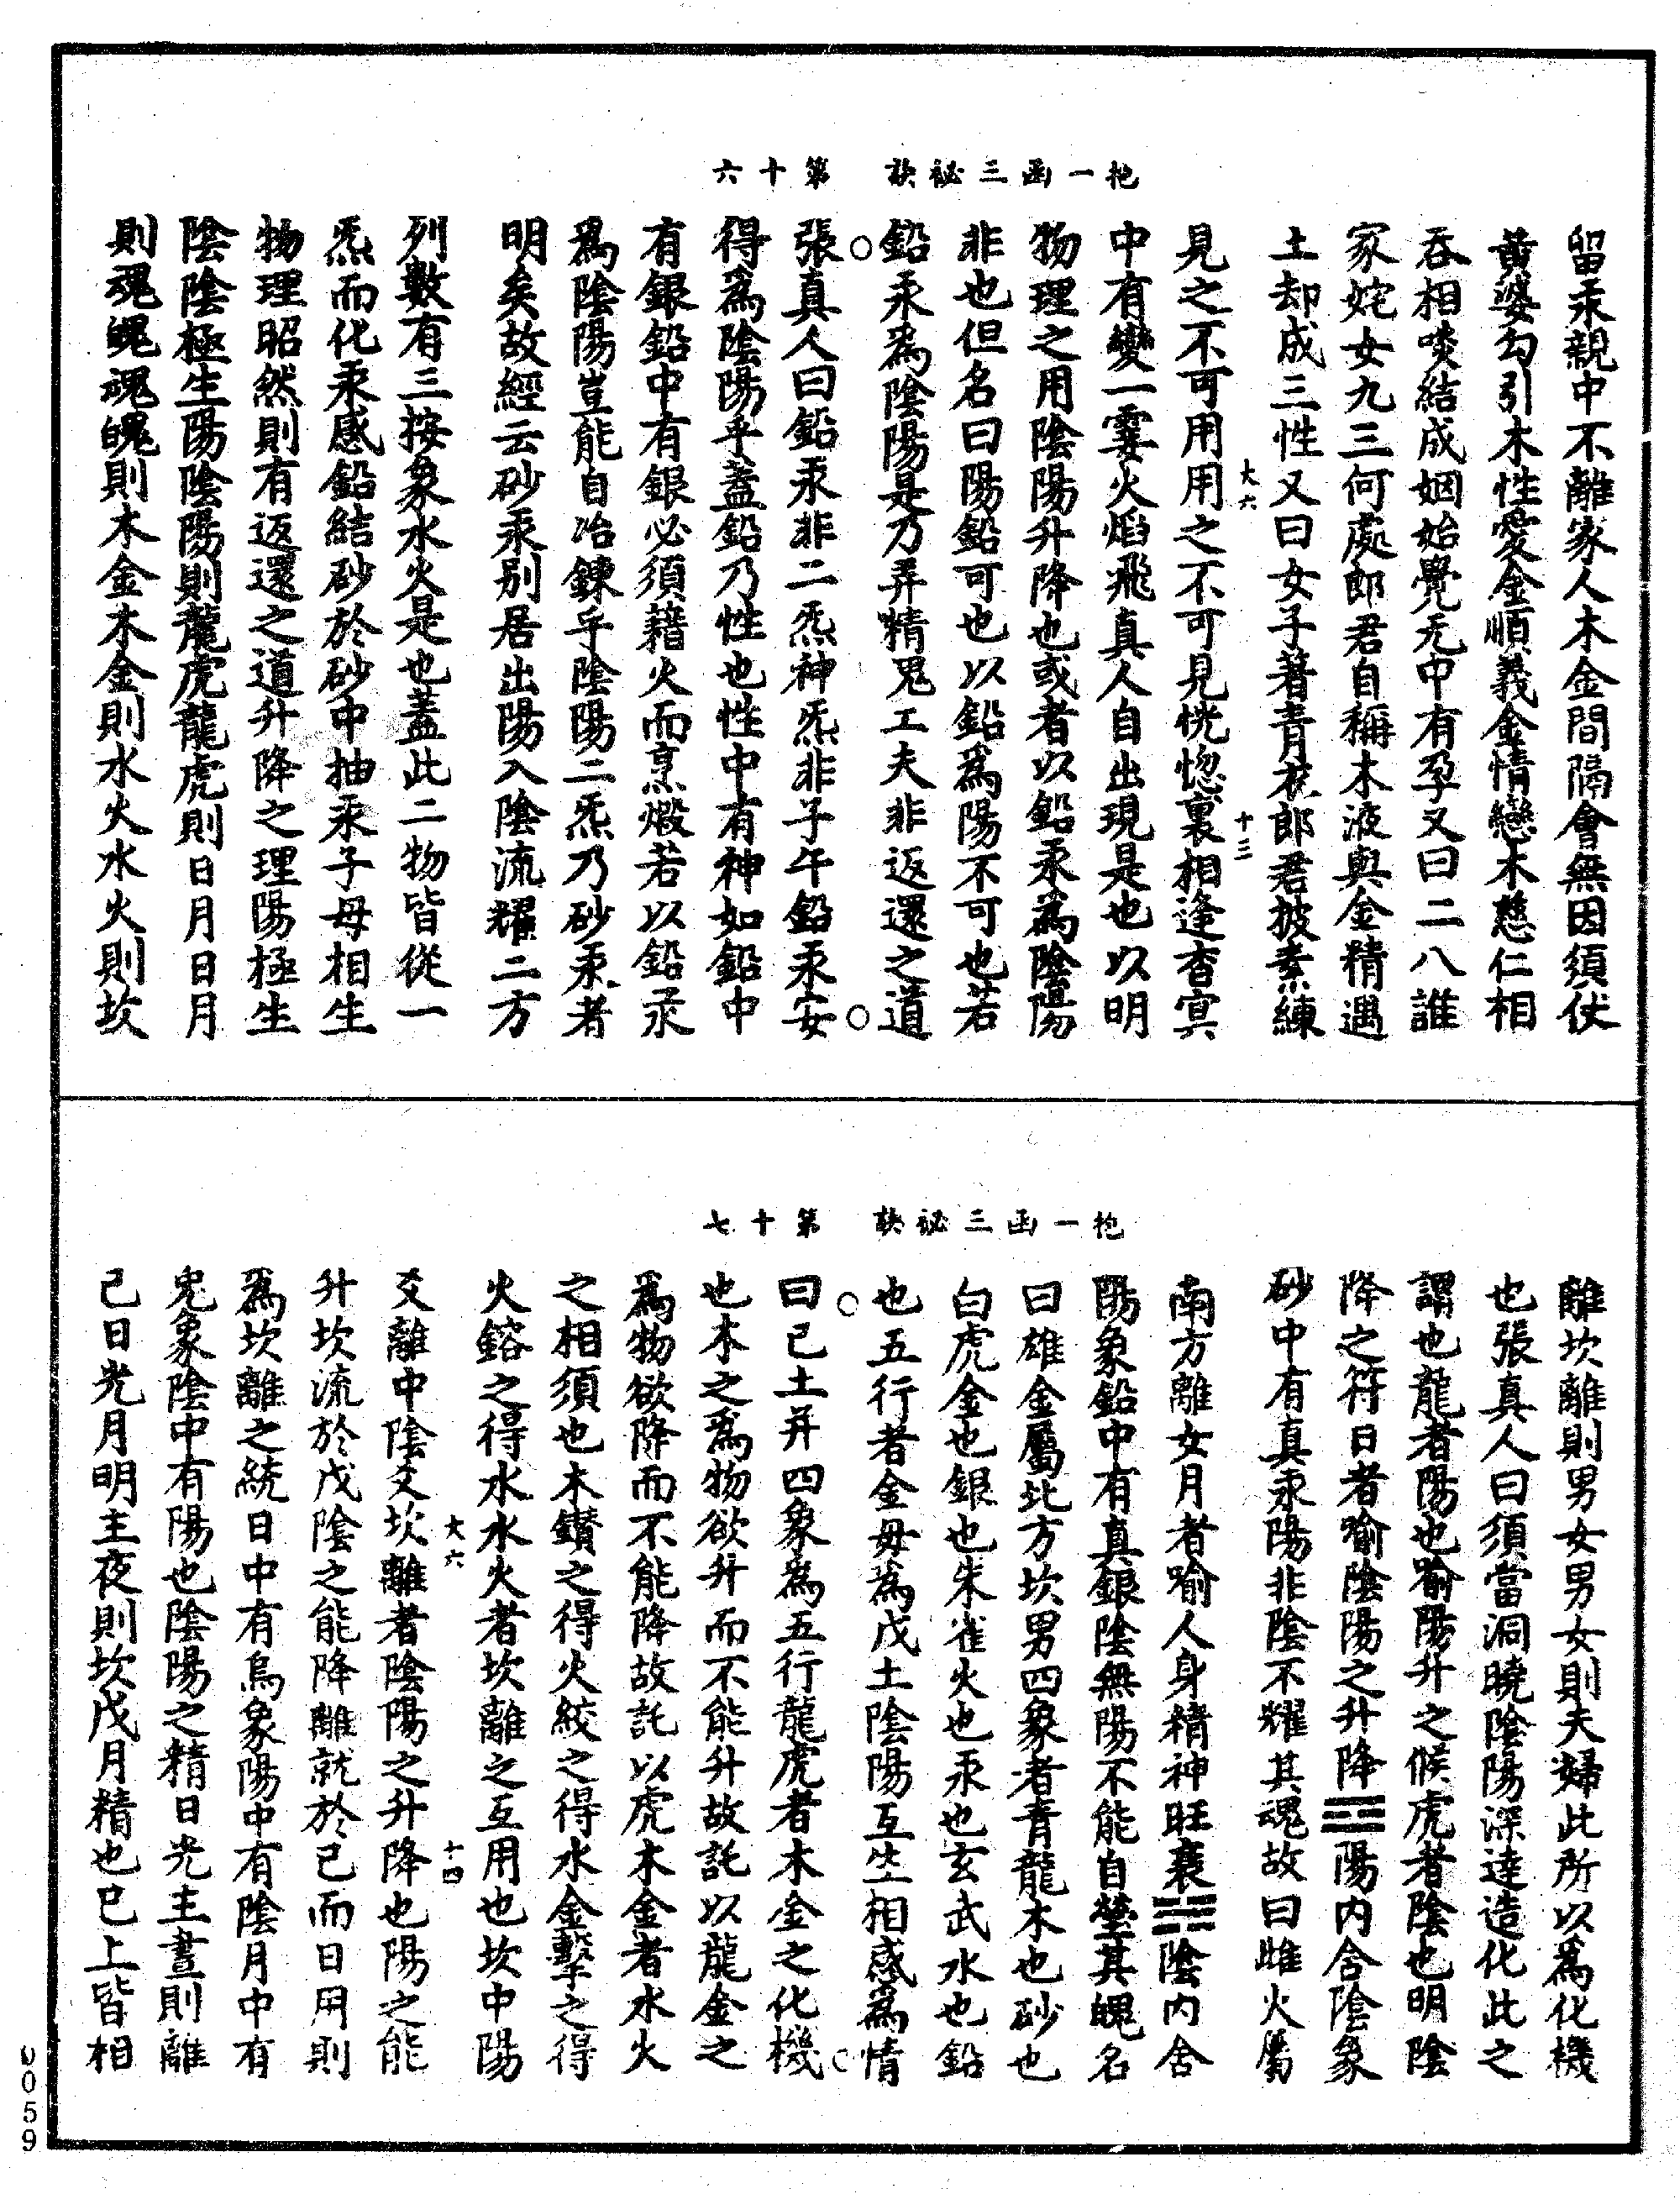 抱一函三祕訣　第十六
留汞親中不離家人木金間隔會無因須伏
黃婆勾引木性愛金順義金情戀木慈仁相
吞相啖結成姻始覺无中有孕又曰二八誰
家姹女九三何處郎君自稱木液與金精遇
土却成三性又曰女子著青衣郎君披素練
大六
十三
見之不可用用之不可見恍惚裏相逢杳冥
中有變一霎火焰飛真人自出現是也以明
物理之用陰陽升降也或者以鉛汞為陰陽
非也但名曰陽鉛可也以鉛為陽不可也若
鉛汞為陰陽是乃弄精䰟工夫非返還之道
張真人曰鉛汞非二炁神炁非子午鉛汞安
得為陰陽乎蓋鉛乃性也性中有神如鉛中
有銀鉛中有銀必須藉火而烹煅若以鉛汞
為陰陽豈能自冶鍊乎陰陽二炁乃砂汞者
明矣故經云砂汞別居出陽入陰流耀二方
列數有三按象水火是也蓋此二物皆從一
炁而化汞感鉛結砂於砂中抽汞子母相生
物理昭然則有返還之道升降之理陽極生
陰陰極生陽陰陽則龍虎龍虎則日月日月
則魂魄魂魄則木金木金則水火水火則坎
抱一函三祕訣　第十七
離坎離則男女男女則夫婦此所以為化機
也張真人曰須當洞曉陰陽深達造化此之
謂也龍者陽也喻陽升之候虎者陰也明陰
降之符日者喻陰陽之升降☲陽內含陰象
砂中有真汞陽非陰不耀其魂故曰雌火屬
南方離女月者喻人身精神旺衰☵陰內含
陽象鉛中有真銀陰無陽不能自瑩其魄名
曰雄金屬北方坎男四象者青龍木也砂也
白虎金也銀也朱雀火也汞也玄武水也鉛
也五行者金母為戊土陰陽互生相感為情
曰己土并四象為五行龍虎者木金之化機
也木之為物欲升而不能升故託以龍金之
為物欲降而不能降故託以虎木金者水火
之相須也木鑽之得火絞之得水金擊之得
火鎔之得水水火者坎離之互用也坎中陽
大六
十四
爻離中陰爻坎離者陰陽之升降也陽之能
升坎流於戊陰之能降離就於己而日用則
為坎離之統日中有烏象陽中有陰月中有
兔象陰中有陽也陰陽之精日光主晝則離
己日光月明主夜則坎戊月精也已上皆相
0059